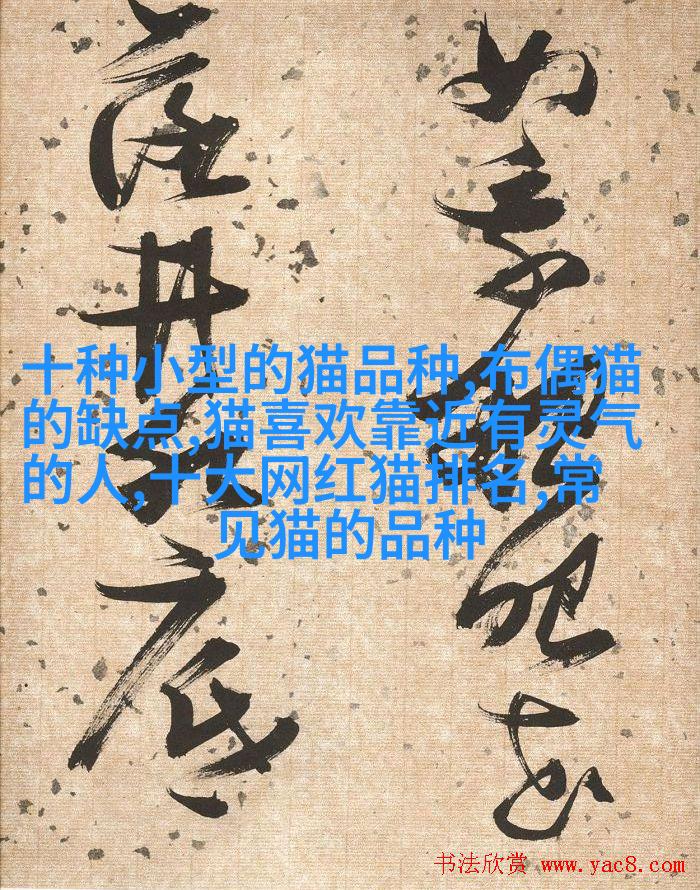 十种小型的猫品种,布偶猫
的缺点,猫喜欢靠近有灵气
的人,十大网红猫排名,常
见猫的品种
如
落井底
书法欣赏 www.yac8.com